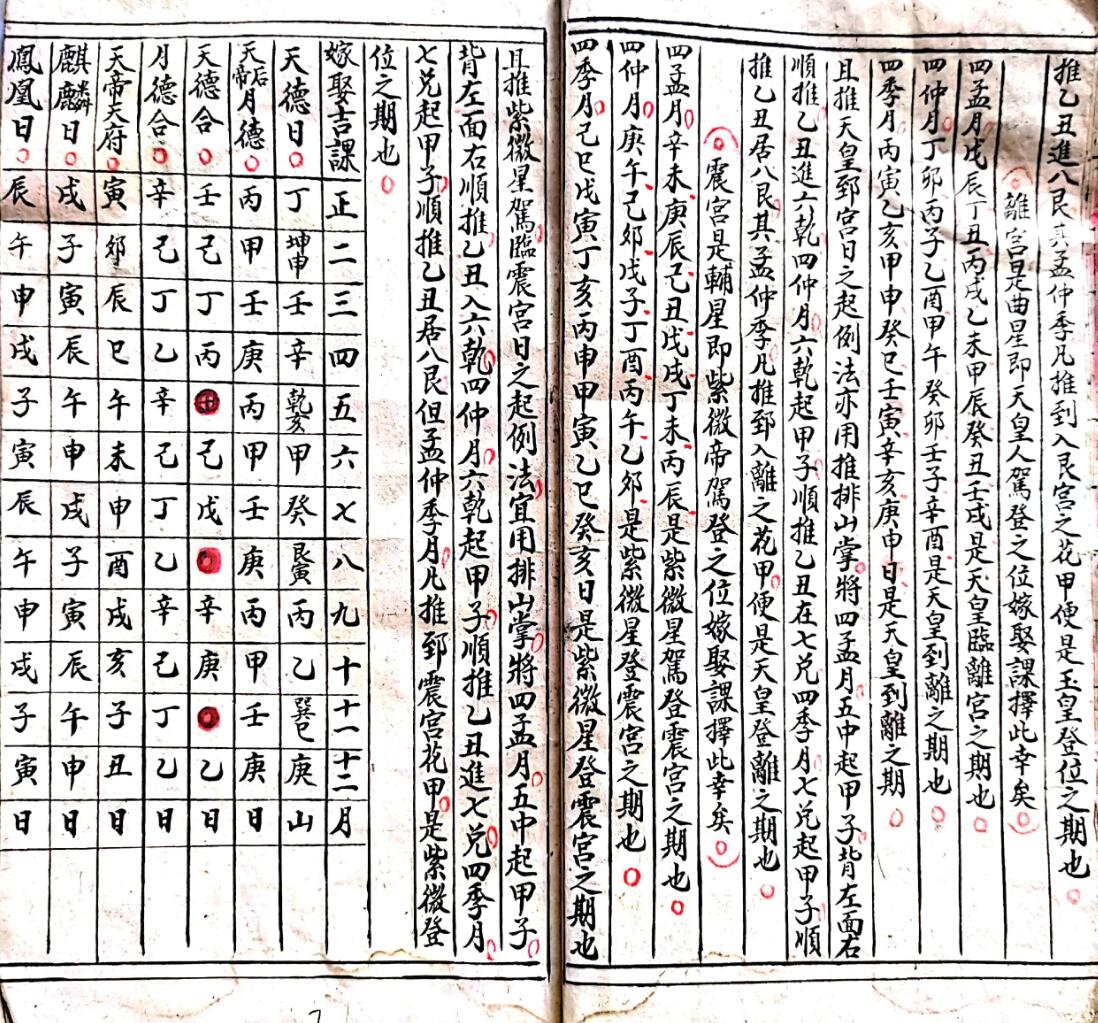 推乙丑進八艮其孟仲季凡推到入艮宮之花甲便是玉皇登位之期也
離宮是曲星即天皇人駕登之位嫁娶課擇此幸矣
四孟月戊辰丁丑丙戌乙未甲辰癸丑壬戌是天皇臨離宮之期也
四仲月丁卯丙子乙酉甲午癸卯壬子辛酉是天皇到離之期也
四季月丙寅乙亥甲申癸巳壬寅辛亥庚申日是天皇到離之期
且推天皇到宮日之起例法亦用推排山掌將四孟月五中起甲子背左面右
順推乙丑進六乾四仲月六乾起甲子順推乙丑在七兌四季月七兌起甲子順
推乙丑居八艮其孟仲季凡推到入離之花甲便是天皇登離之期也
震宮是輔星即紫微帝駕登之位嫁娶課擇此幸矣
四孟月辛未庚辰己丑戊戌丁未丙辰是紫微星駕登震宮之期也
四仲月庚午己卯戊子丁酉丙午乙卯是紫微星登震宮之期也
四季月己巳戊寅丁亥丙申甲寅乙巳癸亥日是紫微星登震宮之期也
且推紫微星駕臨震宮日之起例法宜用排山掌將四孟月五中起甲子
背左面右順推乙丑入六乾四仲月六乾起甲子順推乙丑進七兌四季月
七兌起甲子順推乙丑居八艮但孟仲季月凡推到震宮花甲是紫微登
位之期也
嫁娶吉課 正 二 三 四 五 六 七 八 九 十 十一 十二 月
天德日 丁 坤申 壬 辛 乾亥 甲 癸 艮寅 丙 乙 巽巳 庚 山
天后帝月德 丙 甲 壬 庚 丙 甲 壬 庚 丙 甲 壬 庚 日
天德合 壬 己 丁 丙 己 戊 辛 庚 乙 日
月德合 辛 己 丁 乙 辛 己 丁 乙 辛 己 丁 乙 日
天帝天府 寅 卯 辰 巳 午 未 申 酉 戌 亥 子 丑 日
麒麟日 戌 子 寅 辰 午 申 戌 子 寅 辰 午 申 日
鳳凰日 辰 午 申 戌 子 寅 辰 午 申 戌 子 寅 日